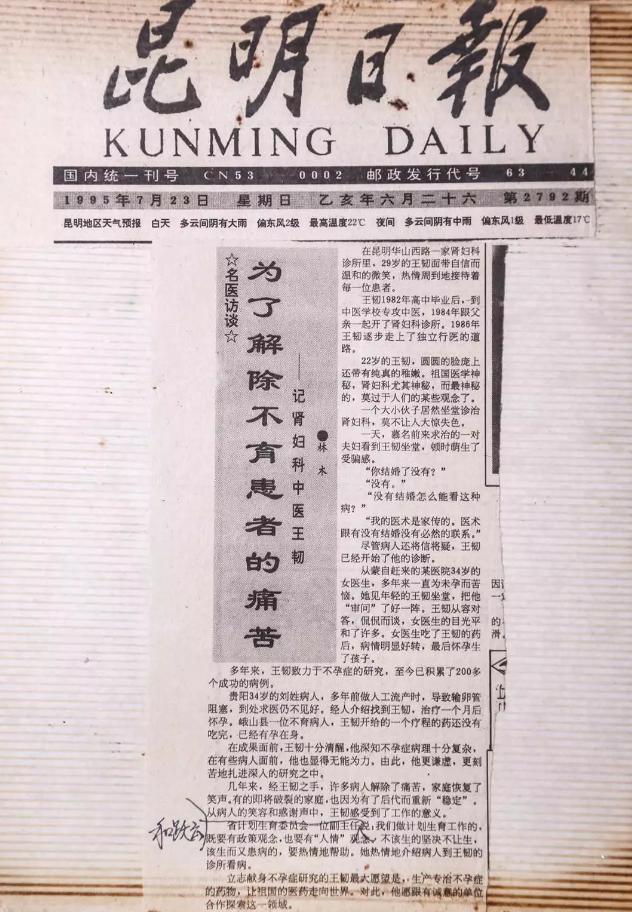 昆明日報
KUNMING DAILY
国内统一刊号 CN53 0002 邮政发行代号 63 44
1995年7月23日 星期日 乙亥年六月二十六 第2792期
昆明地区天气预报 白天 多云间阴有大雨 偏东风2级 最高温度22℃ 夜间 多云间阴有中雨 偏东风1级 最低温度17℃
☆名医访谈☆
为了解除不育患者的痛苦
——记肾妇科中医王韧
●林木
在昆明华山西路一家肾妇科
诊所里，29岁的王韧面带自信而
温和的微笑，热情周到地接待着
每一位患者。
王韧1982年高中毕业后，到
中医学校专攻中医，1984年跟父
亲一起开了肾妇科诊所。1986年
王韧逐步走上了独立行医的道
路。
22岁的王韧，圆圆的脸庞上
还带有纯真的稚嫩。祖国医学神
秘，肾妇科尤其神秘，而最神秘
的，莫过于人们的某些观念了。
一个大小伙子居然坐堂诊治
肾妇科，莫不让人大惊失色。
一天，慕名前来求治的一对
夫妇看到王韧坐堂，顿时萌生了
受骗感。
“你结婚了没有？”
“没有。”
“没有结婚怎么能看这种
病？”
“我的医术是家传的。医术
跟有没有结婚没有必然的联系。”
尽管病人还将信将疑，王韧
已经开始了他的诊断。
从蒙自赶来的某医院34岁的
女医生，多年来一直为未孕而苦
恼。她见年轻的王韧坐堂，把他
“审问”了好一阵。王韧从容对
答，侃侃而谈，女医生的目光平
和了许多。女医生吃了王韧的药
后，病情明显好转，最后怀孕生
了孩子。
多年来，王韧致力于不孕症的研究，至今已积累了200多
个成功的病例。
贵阳34岁的刘姓病人，多年前做人工流产时，导致输卵管
阻塞，到处求医仍不见好。经人介绍找到王韧，治疗一个月后
怀孕。峨山县一位不育病人，王韧开给的一个疗程的药还没有
吃完，已经有孕在身。
在成果面前，王韧十分清醒，他深知不孕症病理十分复杂，
在有些病人面前，他也显得无能为力。由此，他更谦虚，更刻
苦地扎进深入的研究之中。
几年来，经王韧之手，许多病人解除了痛苦，家庭恢复了
笑声。有的即将破裂的家庭，也因为有了后代而重新“稳定”。
从病人的笑容和感谢声中，王韧感受到了工作的意义。
省计划生育委员会一位副主任说，我们做计划生育工作的，
既要有政策观念，也要有“人情”观念，不该生的坚决不让生，
该生而又患病的，要热情地帮助。她热情地介绍病人到王韧的
诊所看病。
立志献身不孕症研究的王韧最大愿望是，生产专治不孕症
的药物，让祖国的医药走向世界。对此，他愿跟有诚意的单位
合作探索这一领域。